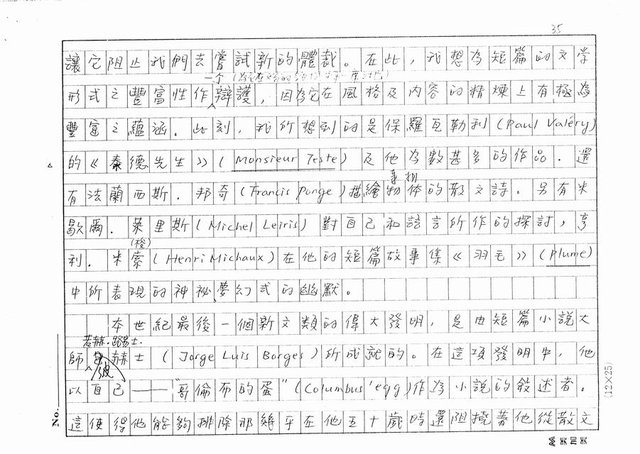 35
讓它阻止我們去嘗試新的體裁。在此,我想為短篇的文學
一个
形式之豐富性作辯護,因為它在風格及內容的精煉上有極為
豐富之蘊涵。此刻,我所想到的是保羅瓦勒利(Paul Valéry)
的《泰德先生》(Monsieur Teste)及他為數甚多的作品。還
事物
有法蘭西斯.邦奇(Francis Ponge)描繪物体的散文詩。另有米
歇爾.萊里斯(Michel Leiris)對自己和語言所作的探討,亨
利.米索(Henri Michaux)在他的短篇故事集《羽毛》(Plume)
中所表現的神祕夢幻式的幽默。
本世紀最後一個新文類的偉大發明,是由短篇小說大
若赫.路易士.
師 赫士(Jorge Luis Borges)所成就的。在這項發明中,他
以自己——"哥倫布的蛋"(Columbus' egg)作為小說的敘述者。
這使得他能夠排除那幾乎在他五十歲時還阻撓著他從散文
No.
(12×25)